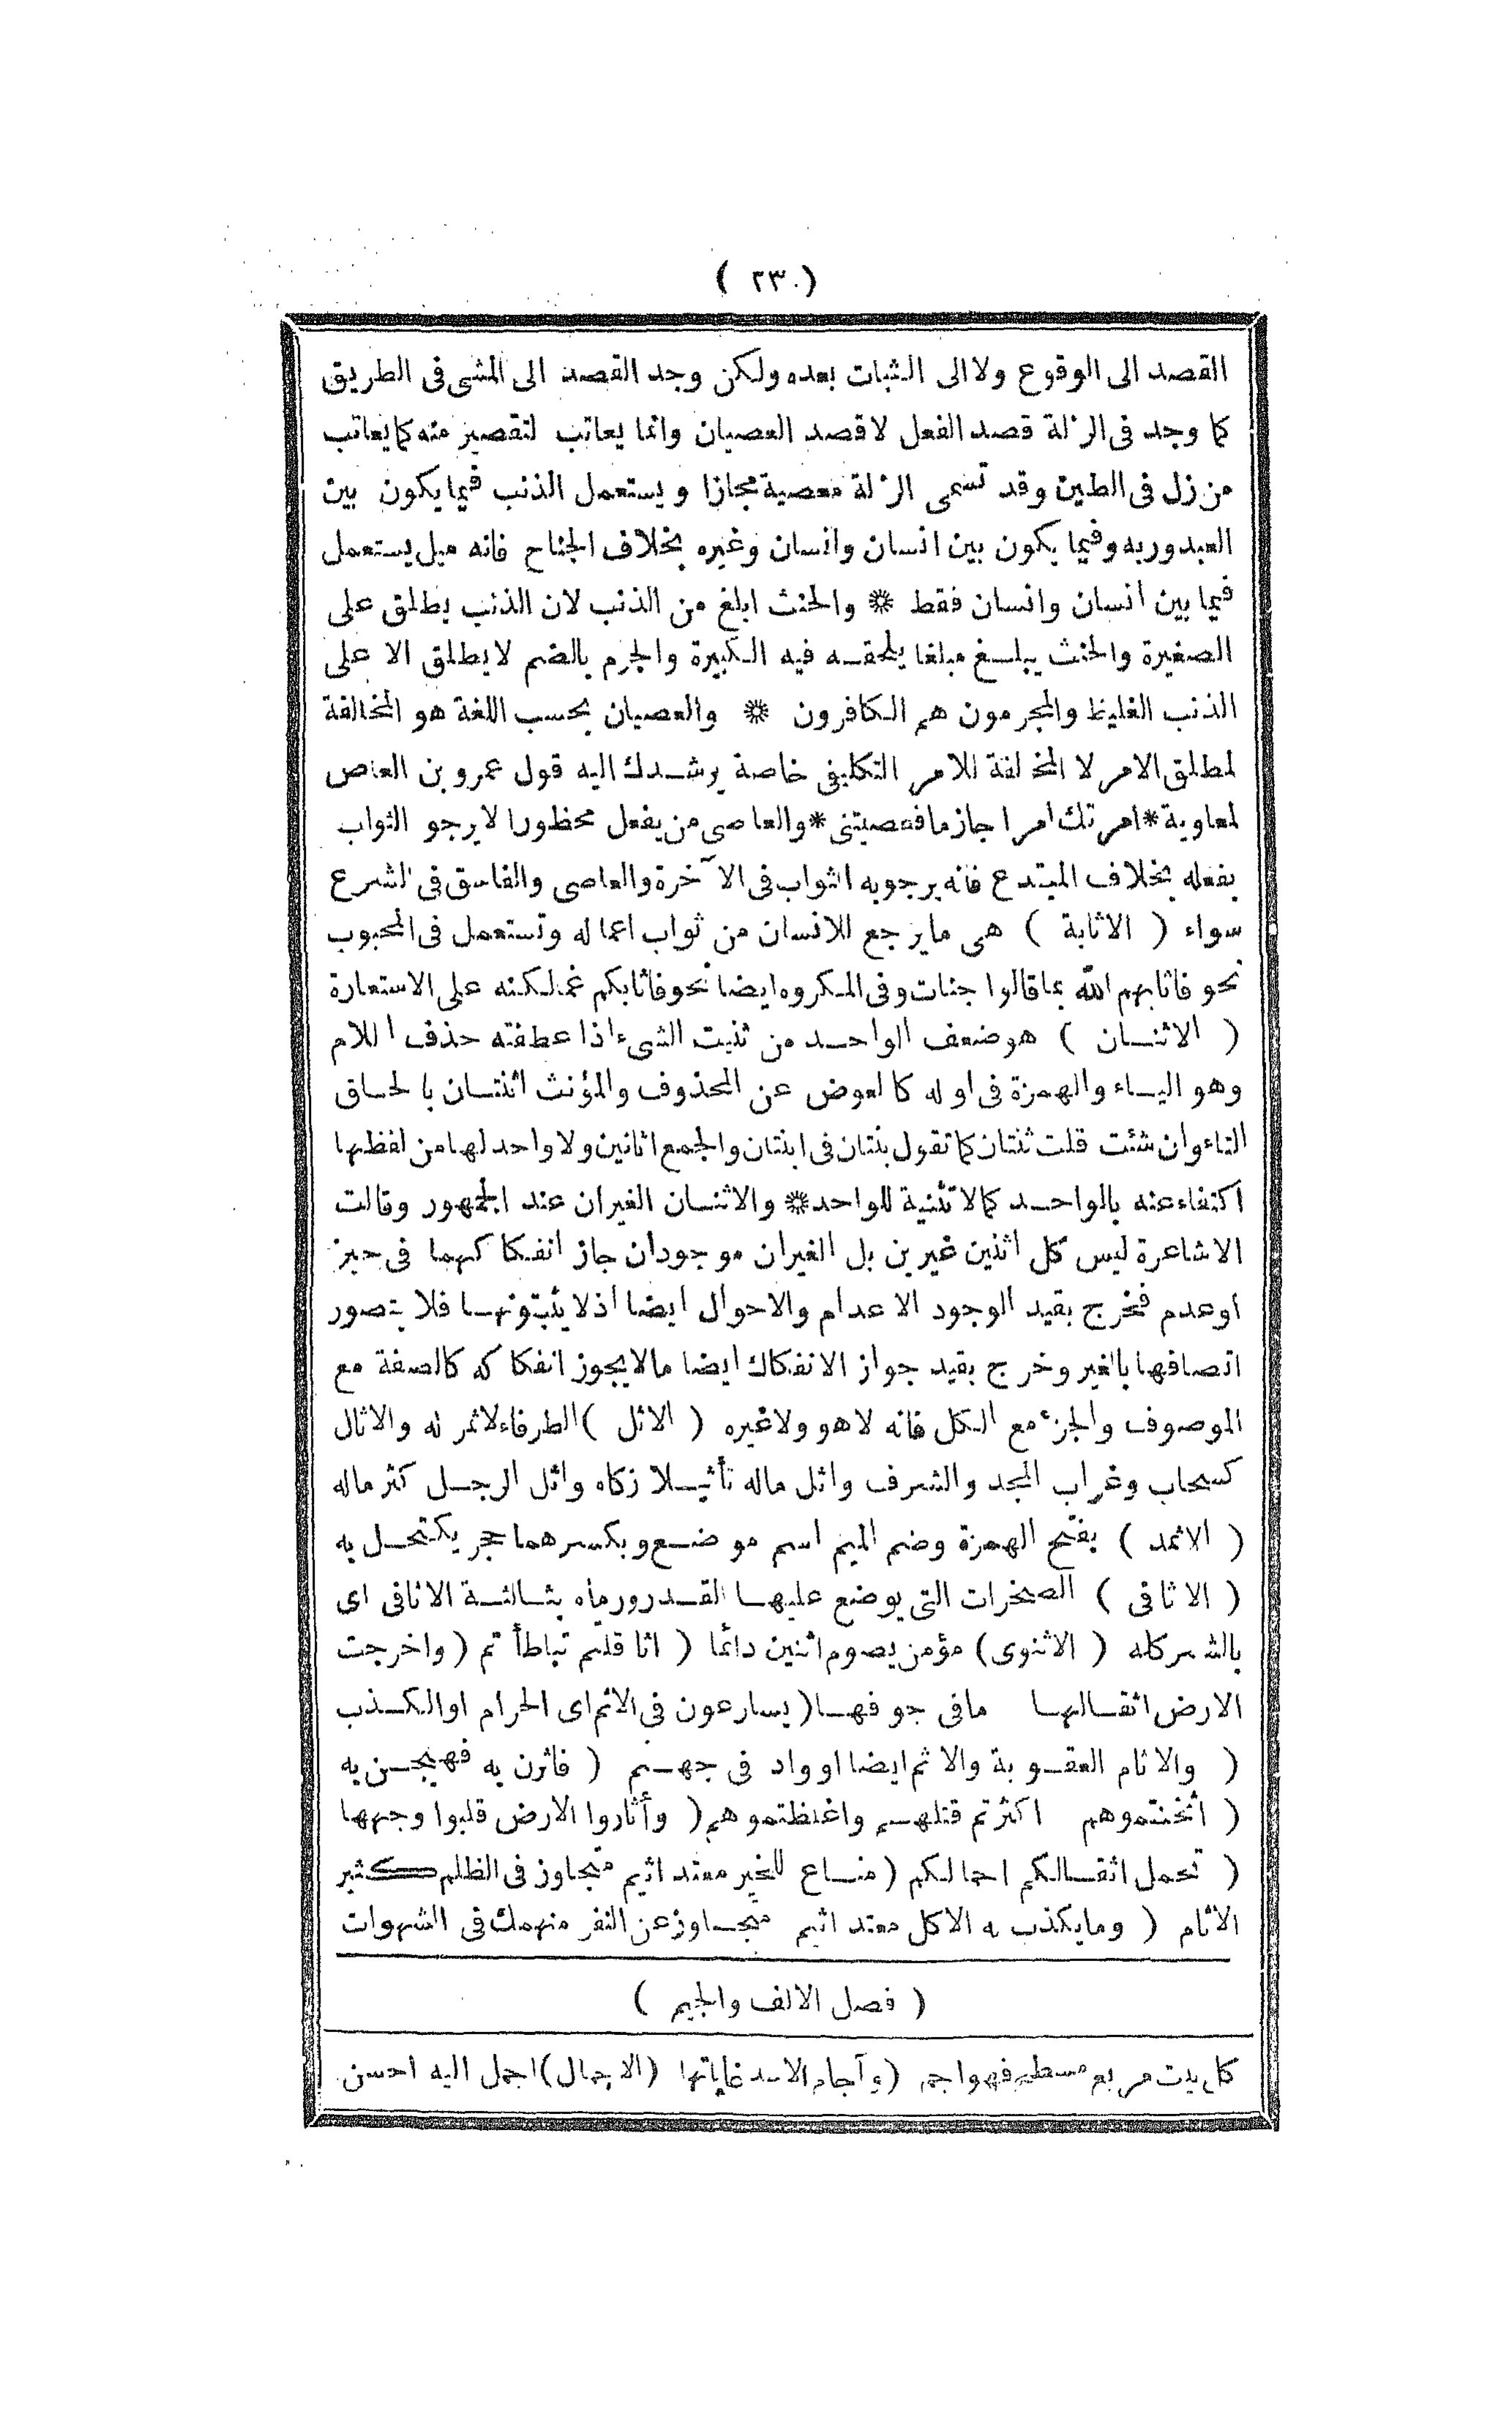 ( ٢٣٠ )
القصد الى الوقوع ولا الى الثبات بعده ولكن وجد القصد الى المشى فى الطريق
كما وجد فى الزلة قصد الفعل لا قصد العصيان وانما يعاتب لتقصير منه كما يعاتب
من زل فى الطين وقد تسمى الزلة معصية مجازا ويستعمل الذنب فيما يكون بين
العبد وربه وفيما يكون بين انسان وانسان وغيره بخلاف الجناح فانه ميل يستعمل
فيما بين انسان وانسان فقط * والحنث ابلغ من الذنب لان الذنب يطلق على
الصغيرة والحنث يبلغ مبلغا يلحقه فيه الكبيرة والجرم بالضم لا يطلق الا على
الذنب الغليظ والمجرمون هم الكافرون * والعصيان بحسب اللغة هو المخالفة
لمطلق الامر لا المخالفة للامر التكليفى خاصة يرشدك اليه قول عمرو بن العاص
لمعاوية * امرتك امرا جازما فعصيتنى * والعاصى من يفعل محظورا لا يرجو الثواب
بفعله بخلاف المبتدع فانه يرجو به الثواب فى الآخرة والعاصى والفاسق فى الشرع
سواء ( الاثابة ) هى ما يرجع للانسان من ثواب اعماله وتستعمل فى المحبوب
نحو فاثابهم الله بما قالوا جنات وفى المكروه ايضا نحو فاثابكم غما لكنه على الاستعارة
( الاثنان ) هو ضعف الواحد من ثنيت الشىء اذا عطفته حذف اللام
وهو الياء والهمزة فى اوله كالعوض عن المحذوف والمؤنث اثنتان بالحاق
التاء وان شئت قلت ثنتان كما تقول بنتان فى ابنتان والجمع اثانين ولا واحد لها من لفظها
اكتفاء عنه بالواحد كما لا تثنية للواحد * والاثنان الغيران عند الجمهور وقالت
الاشاعرة ليس كل اثنين غيرين بل الغيران موجودان جاز انفكاكهما فى حيز
او عدم فخرج بقيد الوجود الاعدام والاحوال ايضا اذ لا يثبتونها فلا يتصور
اتصافها بالغير وخرج بقيد جواز الانفكاك ايضا ما لا يجوز انفكاكه كالصفة مع
الموصوف والجزء مع الكل فانه لا هو ولا غيره ( الاثل ) الطرفاء لا ثمر له والاثال
كسحاب وغراب المجد والشرف واثل ماله تأثيلا زكاه واثل الرجل كثر ماله
( الاثمد ) بفتح الهمزة وضم الميم اسم موضع وبكسرهما حجر يكتحل به
( الاثافى ) الصخرات التى يوضع عليها القدر ورماه بثالثة الاثافى اى
بالشر كله ( الاثنوى ) مؤمن يصوم اثنين دائما ( اثاقلتم تباطأتم ( واخرجت
الارض اثقالها ما فى جوفها ( يسارعون فى الاثم اى الحرام او الكذب
( والاثام العقوبة والاثم ايضا او واد فى جهنم ( فاثرن به فهيجن به
( اثخنتموهم اكثرتم قتلهم واغلظتموهم ( وأثاروا الارض قلبوا وجهها
( تحمل اثقالكم احمالكم ( مناع للخير معتد اثيم متجاوز فى الظلم كثير
الاثام ( وما يكذب به الا كل معتد اثيم متجاوز عن النفر منهمك فى الشهوات
( فصل الالف والجيم )
كل بيت مربع مسطح فهو اجم ( وآجام الاسد غاباتها ( الاجمال ) اجمل اليه احسن